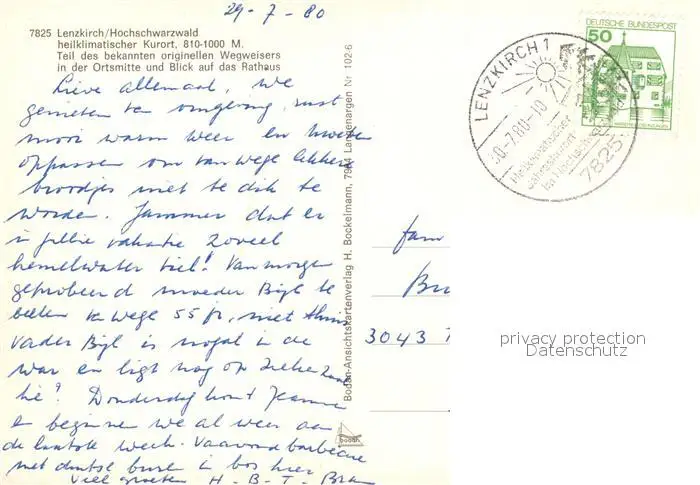 29-7-80
7825 Lenzkirch/Hochschwarzwald
heilklimatischer Kurort, 810-1000 M.
Teil des bekannten originellen Wegweisers
in der Ortsmitte und Blick auf das Rathaus
Lieve allemaal, We
genieten v.d. omgeving, rust
mooi warm weer en moeten
oppassen om vanwege lekkere
broodjes niet te dik te
worden. Jammer dat er
in jullie vakantie zoveel
hemelwater viel! Vanmorgen
geprobeerd moeder Bijl te
bellen vanwege 55 jr, niet thuis
vader Bijl is nogal in de
war en ligt nog op
Donderdag komt Jeanne
en beginnen we al weer aan
de laatste week. Vanavond barbecue
met duitse buren in bos hier
Veel groeten H-B-T-
Boden-Ansichtskartenverlag H. Bockelmann, 7994 Langenargen Nr. 102/6
boden
DEUTSCHE BUNDESPOST
50
LENZKIRCH 1
30.-7.80-10
Heilklimatischer
Jahreskurort
im Hochschwarzwald
7825
fam
3043
privacy protection
Datenschutz